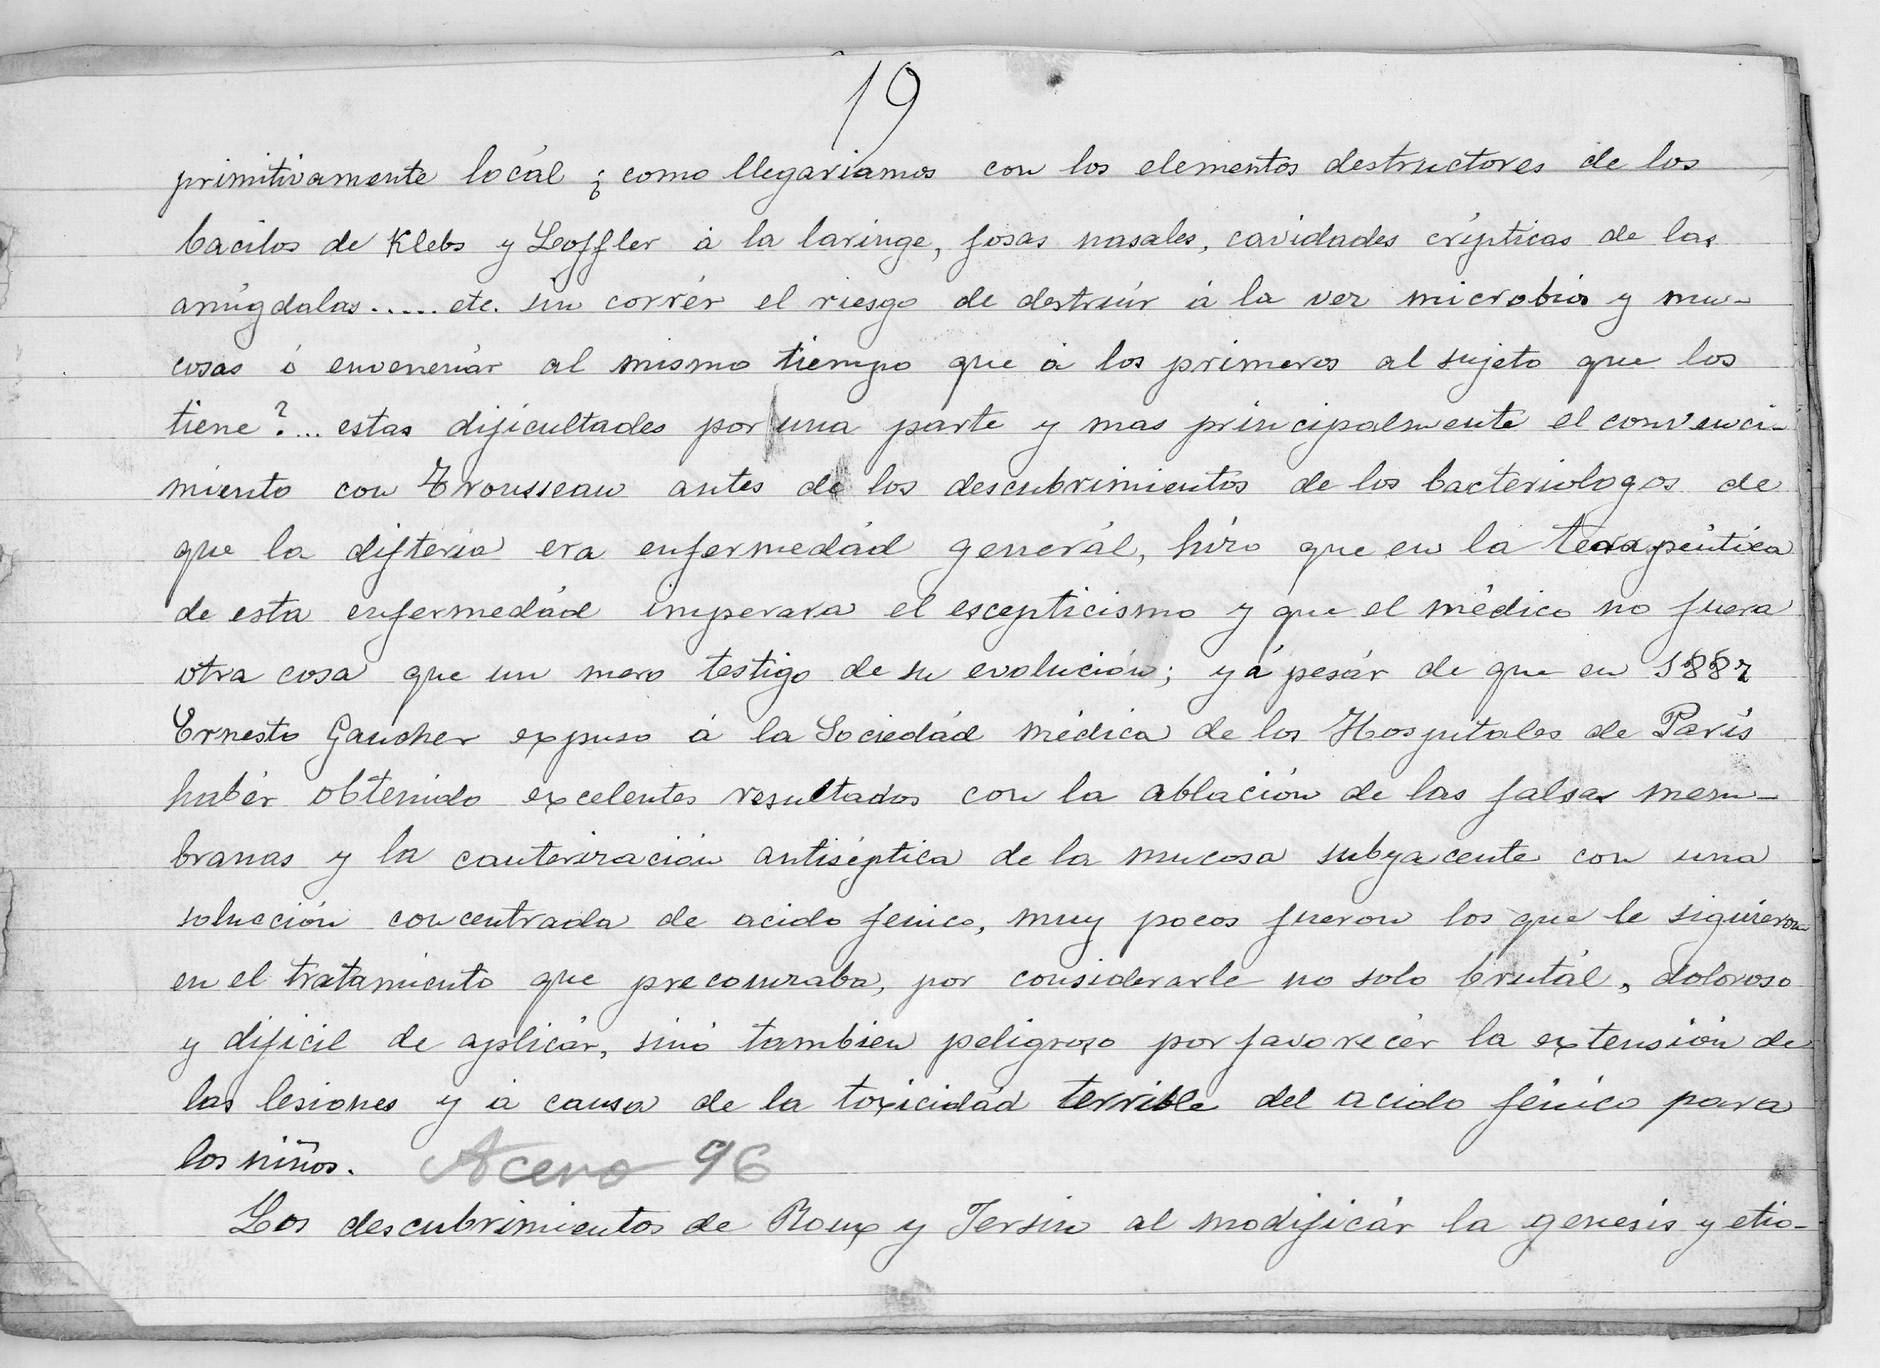 19
primitivamente locál ¿como llegariamos con los elementos destructores de los
bacilos de Klebs y Loffler á la laringe, fosas nasales, cavidades crípticas de las
amígdalas..... etc. sin corrér el riesgo de destruír á la vez microbios y mu-
cosas ó envenenár al mismo tiempo que á los primeros al sujeto que los
tiene?... estas dificultades por una parte y mas principalmente el convenci-
miento con Trousseau antes de los descubrimientos de los bacteriologos de
que la difteria era enfermedád generál, hizo que en la terapéutica
de esta enfermedád imperara el escepticismo y que el médico no fuera
otra cosa que un mero testigo de su evolución; y á pesár de que en 1887
Ernesto Gaucher expuso á la Sociedád médica de los Hospitales de París
habér obtenido excelentes resultados con la ablación de las falsas mem-
branas y la cauterización antiséptica de la mucosa subyacente con una
solucción concentrada de acido fenico, muy pocos fueron los que le siguieron
en el tratamiento que preconizaba, por considerarle no solo brutál, doloroso
y dificil de aplicár, sinó tambien peligroso por favorecér la extensión de
las lesiones y á causa de la toxicidád terrible del acido fénico para
los niños. Acero 96
Los descubrimientos de Roux y Jersin al modificár la genesis y etio-